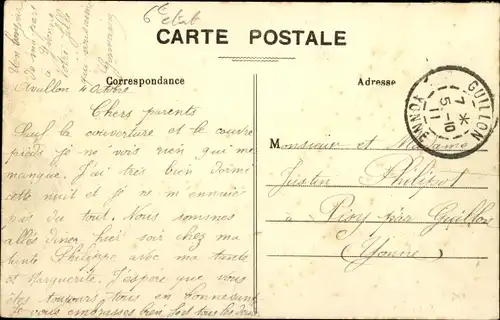 6e etat
Un bonjour
de ma part
à Yvonne
votre fille
qui vous aime
CARTE POSTALE
Correspondance
Adresse
GUILLON
7 *
5-10
11
YONNE
Avallon 4 Octobre
Chers parents
Sauf la couverture et le couvre
pieds je ne vois rien qui me
manque. J'ai très bien dormi
cette nuit et je ne m'ennuie
pas du tout. Nous sommes
allés diner hier soir chez ma
tante Philippe avec ma tante
et Marguerite. J'espère que vous
êtes toujours tous en bonne santé
Je vous embrasse bien fort tous les deux
Monsieur et Madame
Justin Philipot
à Pisy par Guillon
(Yonne)